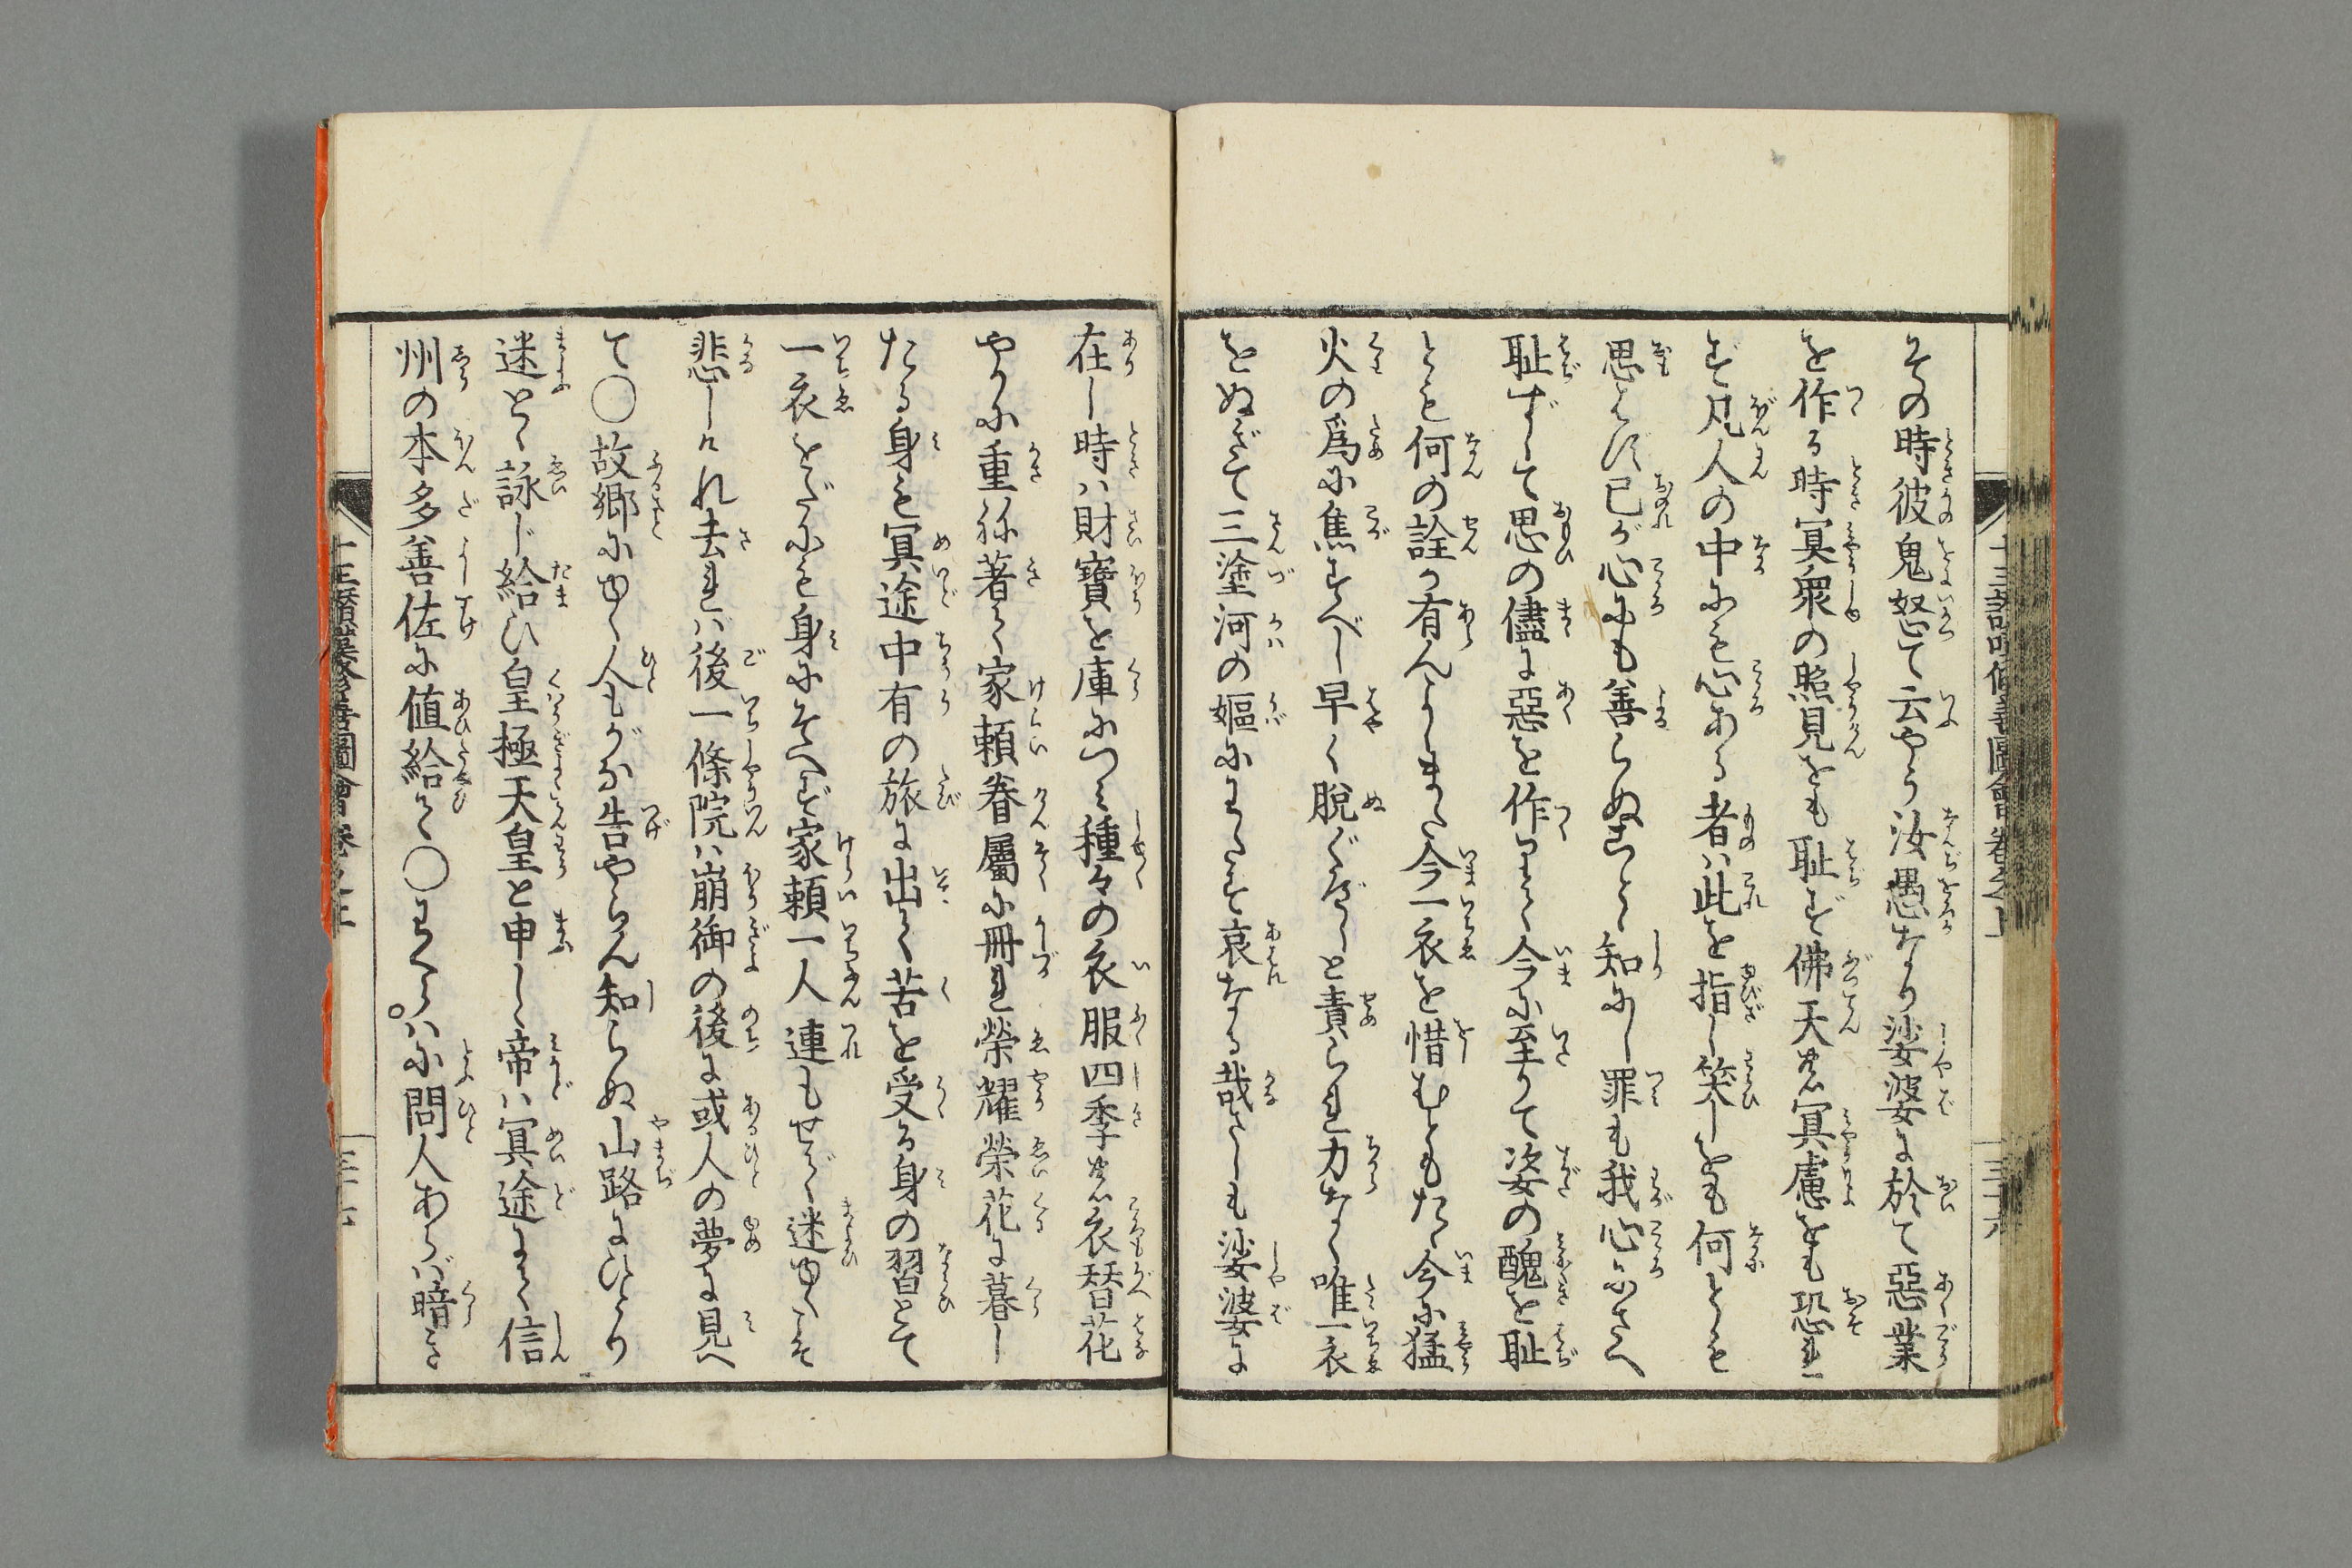 その時彼鬼怒て云やう汝愚なり娑婆に於て惡業
を作る時冥衆の照見をも耻ず佛天の冥慮をも恐れ
ず凡人の中にも心ある者ハ此を指し笑しをも何とも
思はず己が心にも善らぬことゝ知にし罪も我心にさへ
耻ずして思の儘に惡を作りまく今に至りて姿の醜を耻
とも何の詮か有んよしまた今一衣を惜むともたゝ今に猛
火の為に焦すべし早く脱ぐべしと責られ力なく唯一衣
をぬぎて三塗河の嫗にわたす哀なる哉さしも娑婆に
在し時ハ財寶を庫につミ種々の衣服四季の衣替花
やかに重ね著て家頼眷屬に冊れ榮耀榮花に暮し
たる身も冥途中有の旅に出て苦を受る身の習とて
一衣をだにも身にそへず家頼一人連もせで迷ゆくこそ
悲しけれ去れバ後一條院ハ崩御の後に或人の夢に見へ
て〇故郷にゆく人もがな告やらん知らぬ山路にひとり
迷とゝ詠じ給ひ皇極天皇と申しゝ帝ハ冥途にて信
州の本多善佐に値給て〇わくらハに問人あらバ暗き
十王讃嘆修善圖會卷之上
三十六